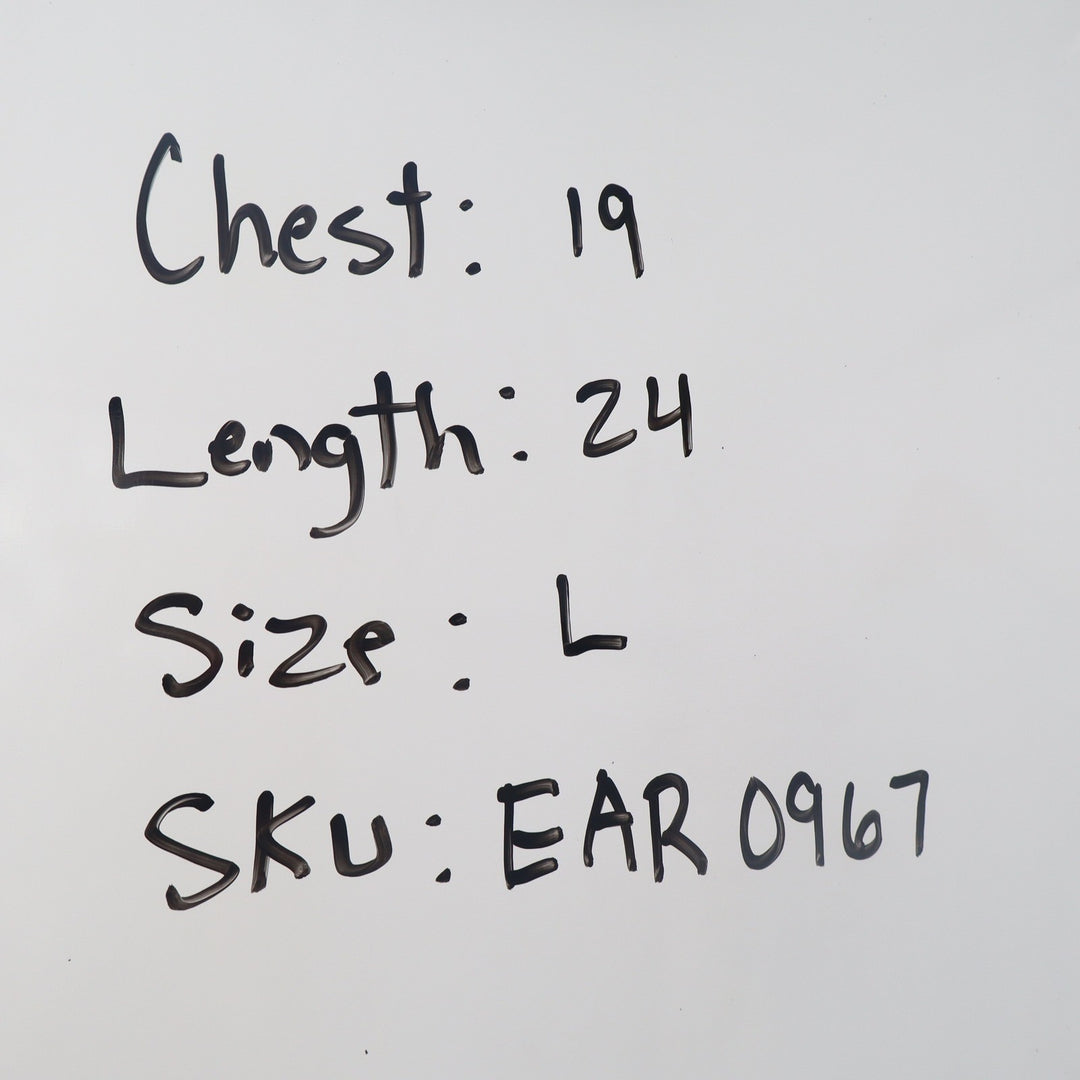 Chest: 19
Length: 24
Size: L
SKU: EAR 0967